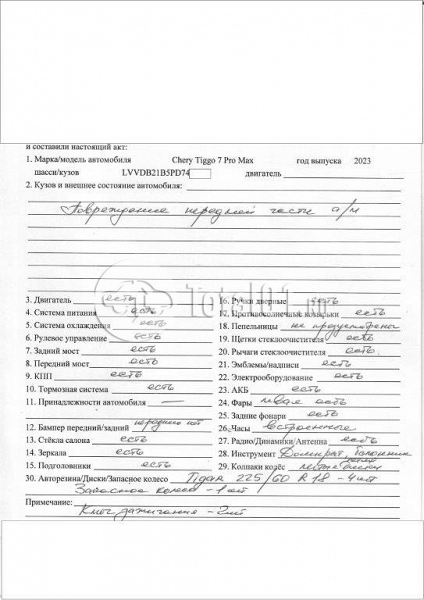 и составили настоящий акт:
1. Марка/модель автомобиля Chery Tiggo 7 Pro Max год выпуска 2023
шасси/кузов LVVDB21B5PD74 двигатель
2. Кузов и внешнее состояние автомобиля:
Повреждение передней части а/м
3. Двигатель есть
4. Система питания есть
5. Система охлаждения есть
6. Рулевое управление есть
7. Задний мост есть
8. Передний мост есть
9. КПП есть
10. Тормозная система есть
11. Принадлежности автомобиля —
12. Бампер передний/задний переднего нет
13. Стёкла салона есть
14. Зеркала есть
15. Подголовники есть
16. Ручки дверные есть
17. Противосолнечные козырьки есть
18. Пепельницы не предусмотрены
19. Щетки стеклоочистителя есть
20. Рычаги стеклоочистителя есть
21. Эмблемы/надписи есть
22. Электрооборудование есть
23. АКБ есть
24. Фары левая есть
25. Задние фонари есть
26. Часы встроенные
27. Радио/Динамики/Антенна есть
28. Инструмент Домкрат, балонник
29. Колпаки колёс литые диски
30. Авторезина/Диски/Запасное колесо Tigar 225/60 R 18 - 4 шт
Запасное колесо - 1 шт
Примечание:
Ключ зажигания - 2 шт
Total01.ru